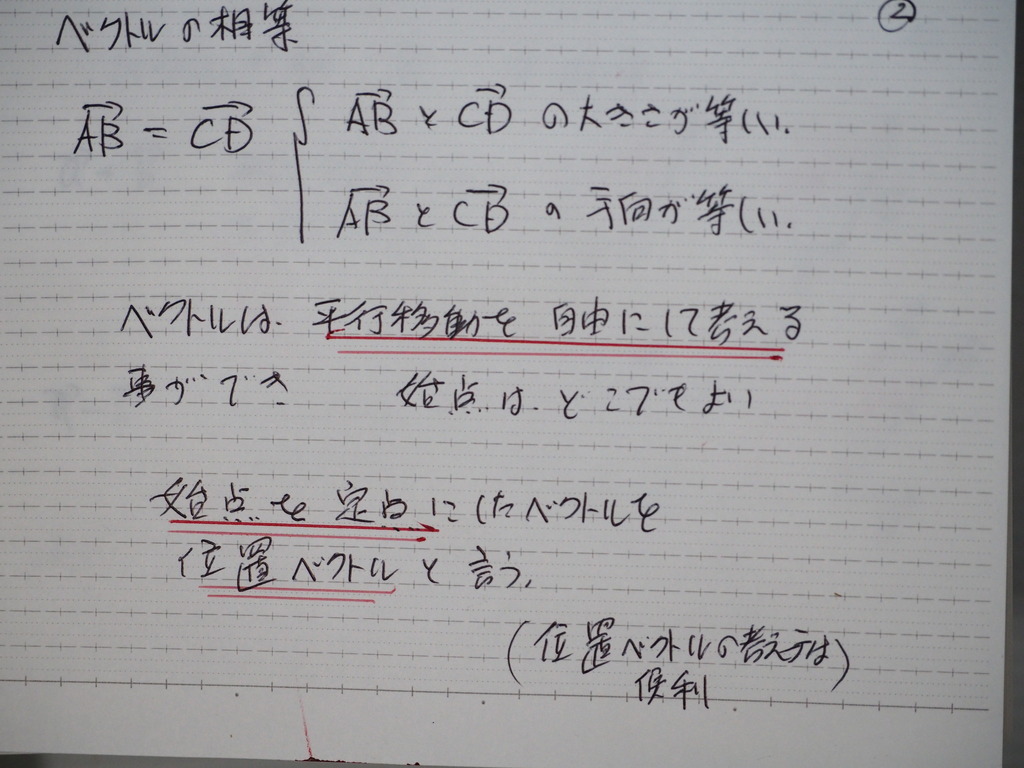 ②
ベクトルの相等
$\overrightarrow{AB} = \overrightarrow{CD}$ { $\overrightarrow{AB}$ と $\overrightarrow{CD}$ の大きさが等しい.
$\overrightarrow{AB}$ と $\overrightarrow{CD}$ の方向が等しい.
ベクトルは、平行移動を自由にして考える
事ができ 始点はどこでもよい
始点を定点にしたベクトルを
位置ベクトルと言う.
(位置ベクトルの考え方は)
便利